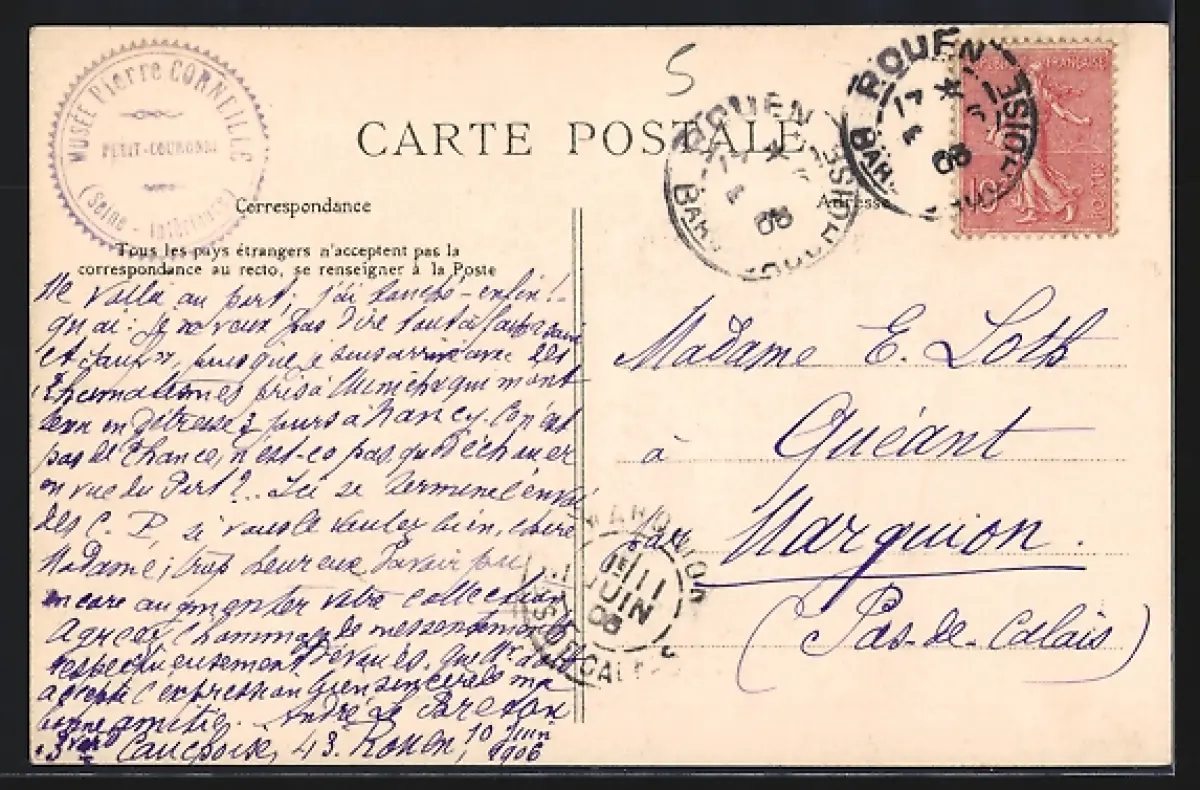 MUSÉE Pierre CORNEILLE
PETIT-COURONNE
(Seine - Inférieure)
5
CARTE POSTALE
ROUEN
BAR
06
ROUEN
BAR
06
RÉPUBLIQUE FRANÇAISE
10
ROTY
Correspondance
Adresse
Tous les pays étrangers n'acceptent pas la
correspondance au recto, se renseigner à la Poste
Me voilà au port ; j'ai touché - enfin !
quai : je ne veux pas dire tout à fait
et sauf », puisque je suis arrivé avec des
Rhumatismes pris à Munich qui m'ont
tenu en détresse 3 jours à Nancy. Ce n'est
pas de chance, n'est-ce pas, que d'échouer
en vue du Port ? .. Ici se termine l'envoi
des C. P, si vous le voulez bien, chère
Madame ; trop heureux d'avoir pu
encore augmenter votre collection
Agréez l'hommage de mes sentiments
respectueusement dévoués. que Mr
accepte l'expression bien sincère de ma
bonne amitié. André Le Breton
Cauchoise, 43. Rouen, 10 Juin
1906
Madame E. Loth
à Quéant
par Marquion.
(Pas-de-Calais)
MARQUION
11
JUIN
06
PAS DE CALAIS